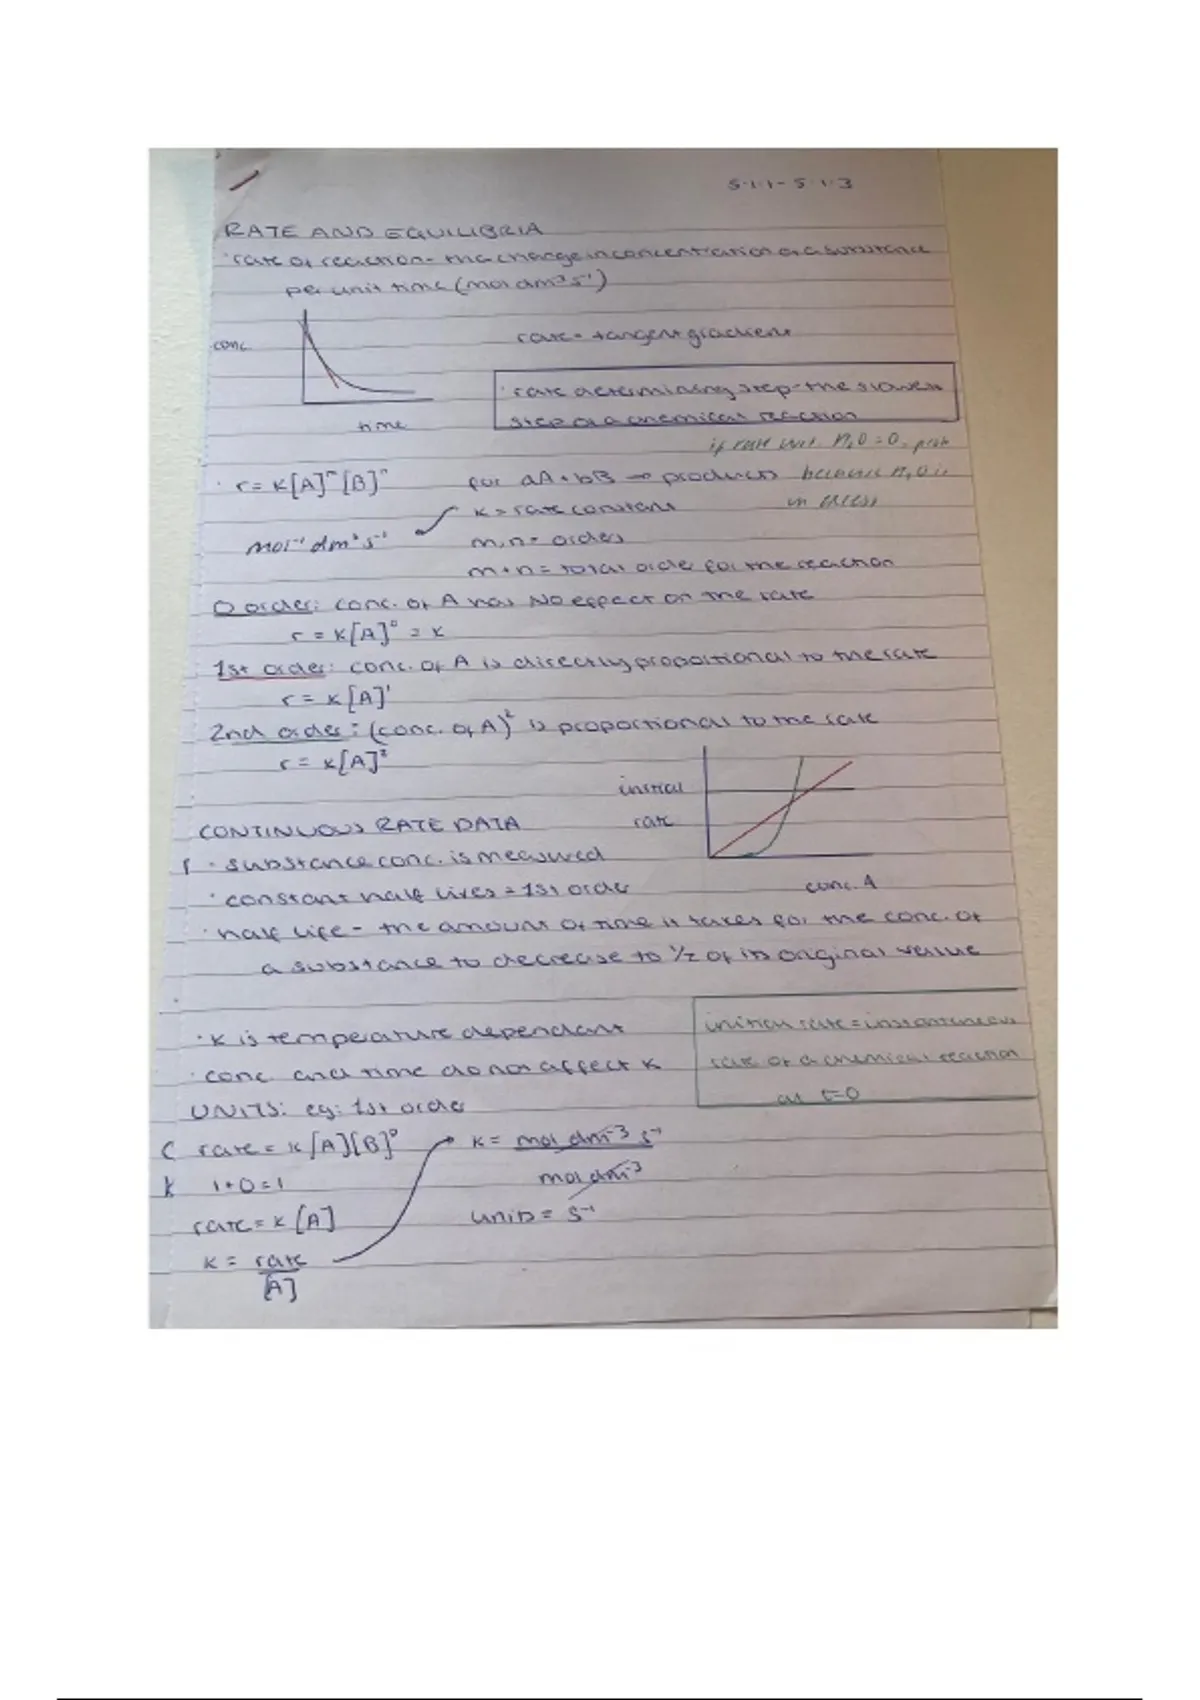 5.1.1-5.1.3
RATE AND EQUILIBRIA
· rate of reaction - the change in concentration of a substance
per unit time (mol dm⁻³ s⁻¹)
conc.
time
rate = tangent gradient
· rate determining step - the slowest
step of a chemical reaction
if rate wrt H₂O = 0, prob
because H₂O is
in excess
· r = k[A]ᵐ[B]ⁿ for aA + bB → products
k = rate constant
mol⁻¹ dm³ s⁻¹
m, n = orders
m + n = total order for the reaction
0 order: conc. of A has NO effect on the rate
r = k[A]⁰ = k
1st order: conc. of A is directly proportional to the rate
r = k[A]¹
2nd order: (conc. of A)² is proportional to the rate
r = k[A]²
initial
rate
conc. A
CONTINUOUS RATE DATA
· substance conc. is measured
· constant half lives = 1st order
· half life - the amount of time it takes for the conc. of
a substance to decrease to 1/2 of its original value
· k is temperature dependant
· conc. and time do not affect k
initial rate = instantaneous
rate of a chemical reaction
at t=0
UNITS: eg: 1st order
rate = k[A][B]⁰
1+0=1
rate = k[A]
k = rate
[A]
k = mol dm⁻³ s⁻¹
mol dm⁻³
units = s⁻¹